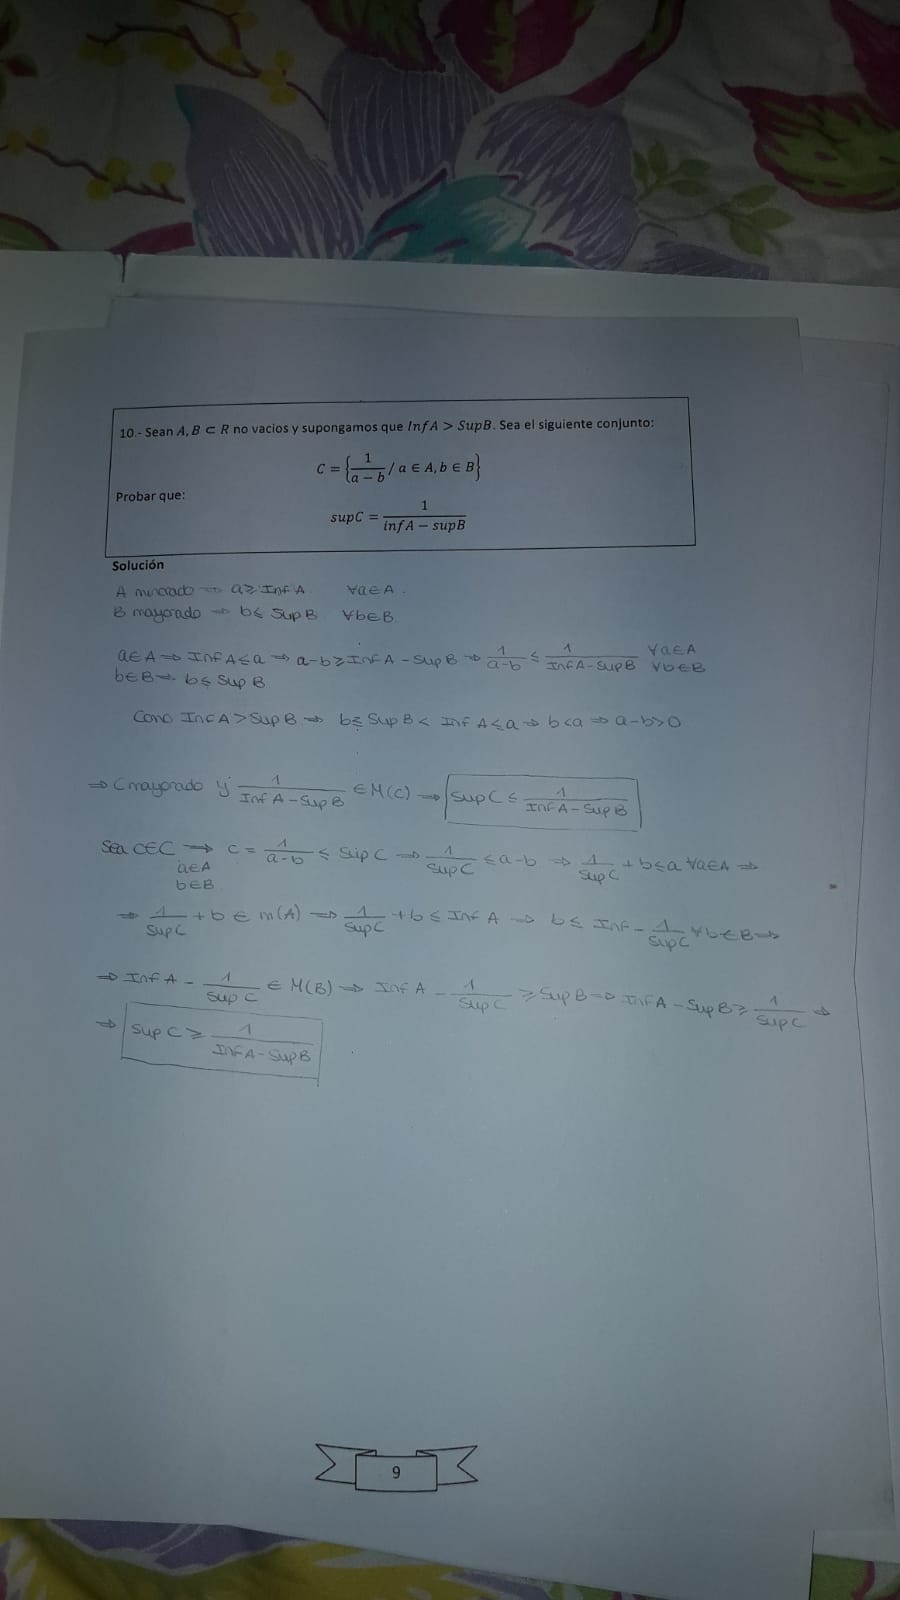 10.- Sean A, B ⊂ R no vacios y supongamos que InfA > SupB. Sea el siguiente conjunto:
C = {1/(a − b) / a ∈ A, b ∈ B}
Probar que:
supC = 1/(infA − supB)
Solución
A minorado ⇒ a ≥ InfA ∀a∈A.
B mayorado ⇒ b ≤ SupB ∀b∈B.
a∈A ⇒ InfA ≤ a ⇒ a-b ≥ InfA - SupB ⇒ 1/(a-b) ≤ 1/(InfA-SupB) ∀a∈A
b∈B ⇒ b ≤ SupB ∀b∈B
Como InfA > SupB ⇒ b ≤ SupB < InfA ≤ a ⇒ b<a ⇒ a-b>0
⇒ C mayorado y 1/(InfA-SupB) ∈ M(C) ⇒ SupC ≤ 1/(InfA-SupB)
Sea c∈C ⇒ c = 1/(a-b) ≤ SupC ⇒ 1/SupC ≤ a-b ⇒ 1/SupC + b ≤ a ∀a∈A ⇒
a∈A
b∈B
⇒ 1/SupC + b ∈ m(A) ⇒ 1/SupC + b ≤ InfA ⇒ b ≤ Inf - 1/SupC ∀b∈B ⇒
⇒ InfA - 1/SupC ∈ M(B) ⇒ InfA - 1/SupC ≥ SupB ⇒ InfA - SupB ≥ 1/SupC ⇒
⇒ SupC ≥ 1/(InfA-SupB)
9